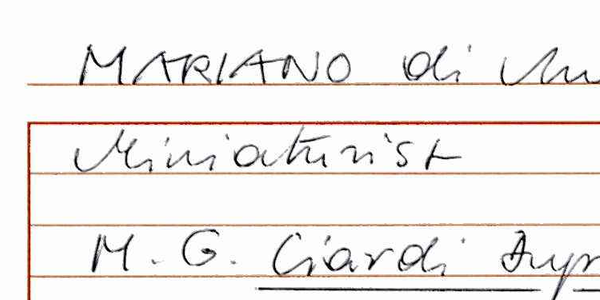 MARIANO di
Miniaturist
M. G. Ciardi Dupr